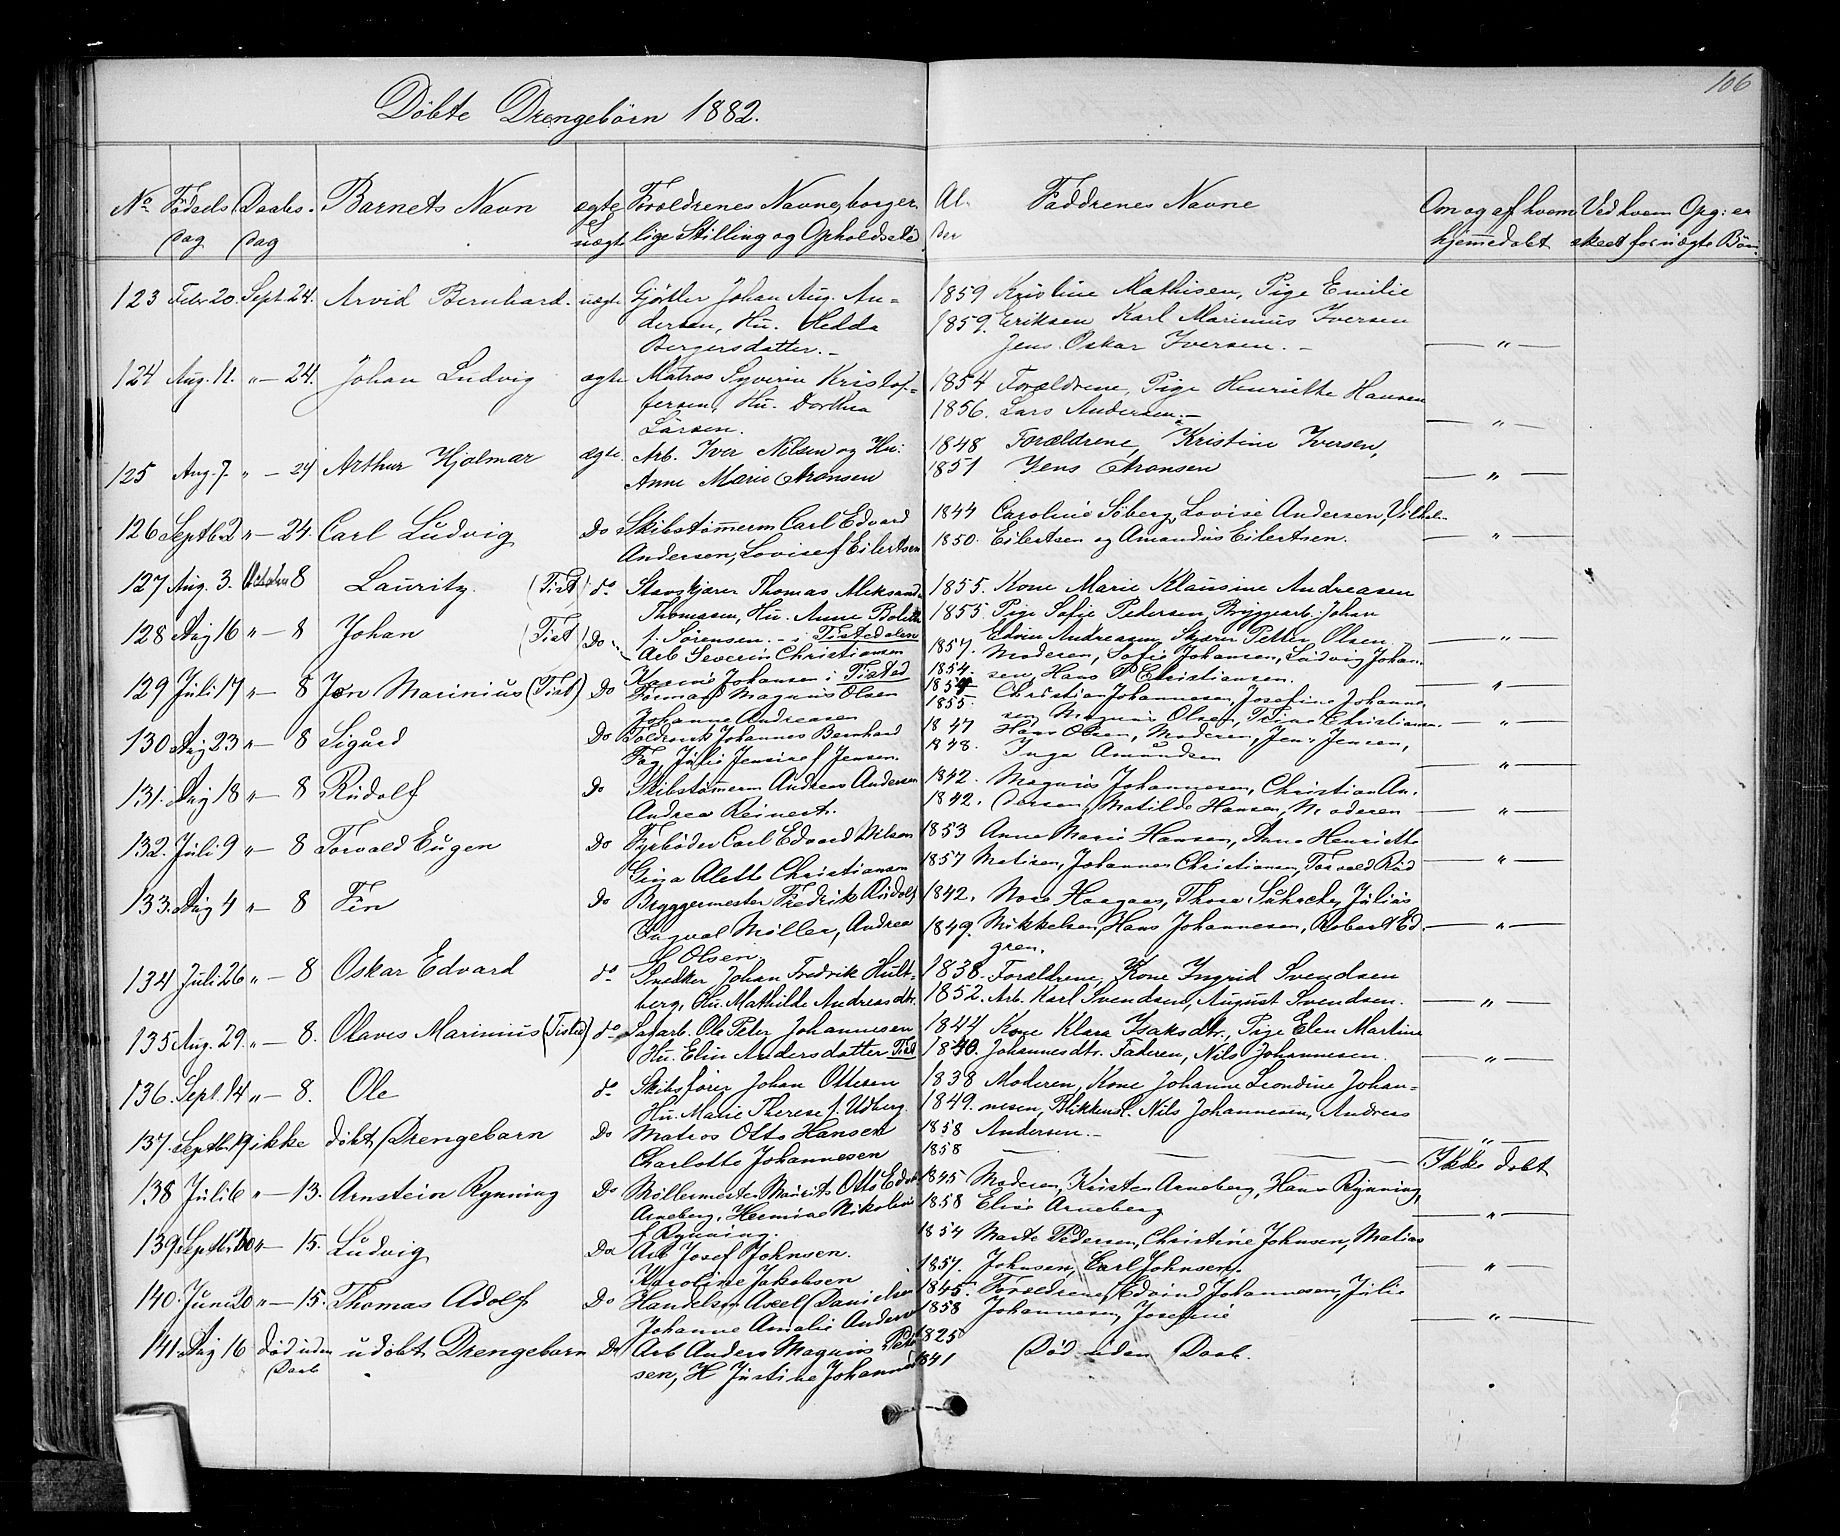 106
Döbte Drengebörn 1882.
No. Födsels Daabs- Barnets Navn ægte Forældrenes Navne, borger- Al- Faddrenes Navne Om og af hvem Ved hvem Opg: er
dag dag uægt lige Stilling og Opholdssted der hjemmedöbt skeet for uægte Börn
123 Febr 20. Sept. 24. Arvid Bernhard. uægte Gjörtler Johan Aug. An- 1859 Kristine Mathisen, Pige Emilie
dersen, Hu. Hedda 1859. Eriksen Karl Marinius Iversen
Bergersdatter. Jens Oskar Iversen. — " —
124 Aug. 11. " — 24. Johan Ludvig ægte Matros Syverin Kristof- 1854 Forældrene, Pige Henriette Hansen
fersen, Hu. Dorthea 1856. Lars Andersen. — " —
Larsen.
125 Aug. 7. " — 24 Arthur Hjalmar ægte Arb. Iver Nilsen og Hu. 1848 Forældrene, Kristine Iversen,
Anne Marie Aronsen 1851 Jens Aronsen — " —
126 Septb. 2 " — 24. Carl Ludvig Do Skibstömerm Carl Edvard 1844 Caroline Söberg, Lovise Andersen, Vilhelm
Andersen, Lovise f Eilertsen 1850. Eilertsen og Amandus Eilertsen. — " —
127 Aug. 3. October 8 Lauritz. (Tist) do Thomas Aleksand 1855. Kone Marie Klausine Andreasen
Thomassen, Hu. Anne Bolette 1855. Pige Sofie Pedersen, Bryggearb. Johan
f. Sörensen. - i Tistedalen Edvin Andreasen, Petter Olsen — " —
128 Aug 16 " — 8 Johan (Tist) Do Arb Severin Christiansen 1857. Moderen, Sofie Johansen, Ludvig Johan-
Karine Johansen i Tisted 1854. sen, Hans P Christiansen. — " —
129 Juli 17 " — 8 Jon Marinius (Tist) Do Formand Magnus Olsen Christian Johannesen, Josefine Johanne
Johanne Andreasen 1855. sen, Magnus Olsen, Trine Christiansen — " —
130 Aug 23 " — 8 Sigurd Do Johannes Bernhard 1847 Hans Olsen, Moderen, Jens Jensen,
Fog, Julie Jensine f Jensen. 1848. Inga Amundsen — " —
131. Aug 18 " — 8 Rudolf Do Skibstömerm Andreas Andersen 1842. Magnus Johannesen, Christian An-
Andrea Reinert. 1842. dersen, Matilde Hansen, Moderen — " —
132. Juli 9 " — 8 Torvald Eugen Do Fyrböder Carl Edvard Nilson 1853 Anne Marie Hansen, Anne Henriette
Gina Alette Christiansen 1857 Matisen, Johannes Christiansen, Torvald Röd — " —
133. Aug 4 " — 8 Fin Do Bryggermester Fredrik Rudolf 1842. Nora Haagaas, Thora Suhrcke, Julius
Ingval Möller, Andrea 1849. Mikkelsen, Hans Johannesen, Robert Ed — " —
f Olsen. gren.
134 Juli 26 " — 8 Oskar Edvard do Snedker Johan Fredrik Hult- 1838. Forældrene, Kone Ingrid Svendsen
berg, Hu. Mathilde Andreasdtr. 1852. Arb. Karl Svendsen, August Svendsen. — " —
135 Aug. 29. " — 8. Olaves Marinius (Tisted) do Ole Peter Johannesen 1844 Kone Klara Isaksdtr., Pige Elen Martine
Hu. Elin Andersdatter Tist 1840. Johannesdtr. Faderen, Nils Johannesen. — " —
136. Sept. 14 " — 8. Ole do Skibsförer Johan Ottesen 1838 Moderen, Kone Johanne Leondine Johan-
Hu. Marie Therese f. Udberg. 1849. nesen, Blikkensl. Nils Johannesen, Andreas
137. Septb. 19 ikke döbt Drengebarn Do Matros Otto Hansen 1858 Andersen. — " —
Charlotte Johannesen 1858 — — — Ikke döbt
138 Juli 6 " — 13. Arnstein Rynning Do Möllermester Maurits Otto Edv 1845 Moderen, Kristen Arneberg, Hans Rynning,
Arneberg, Hermine Nikoline 1858 Elise Arneberg — " —
f Rynning.
139 Septb. 10 " — 15. Ludvig Do Arb Josef Johnsen. 1854 Marte Pedersen, Christine Johnsen, Matias
Karoline Jakobsen 1857. Johnsen, Carl Johnsen. — " —
140. Juni 20 " — 15. Thomas Adolf Do Handelsm Axel Danielsen 1845. Forældrene, Edvind Johannesen, Julie
Johanne Amalie Andersen 1858 Johannesen, Josefine — " —
141. Aug 16 död uden udöbt Drengebarn Do Arb Anders Magnus Peder 1825 Död uden Daab.
Daab sen, H Justine Johannes 1841